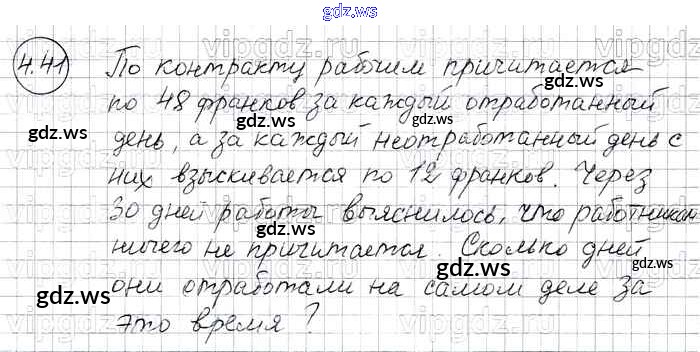 gdz.ws
4.41 По контракту рабочим причитается
по 48 франков за каждый отработанный
gdz.ws gdz.ws gdz.ws
день, а за каждый неотработанный день с
них взыскивается по 12 франков. Через
30 дней работы выяснилось, что работникам
ничего не причитается. Сколько дней
gdz.ws gdz.ws gdz.ws
они отработали на самом деле за
это время?
gdz.ws